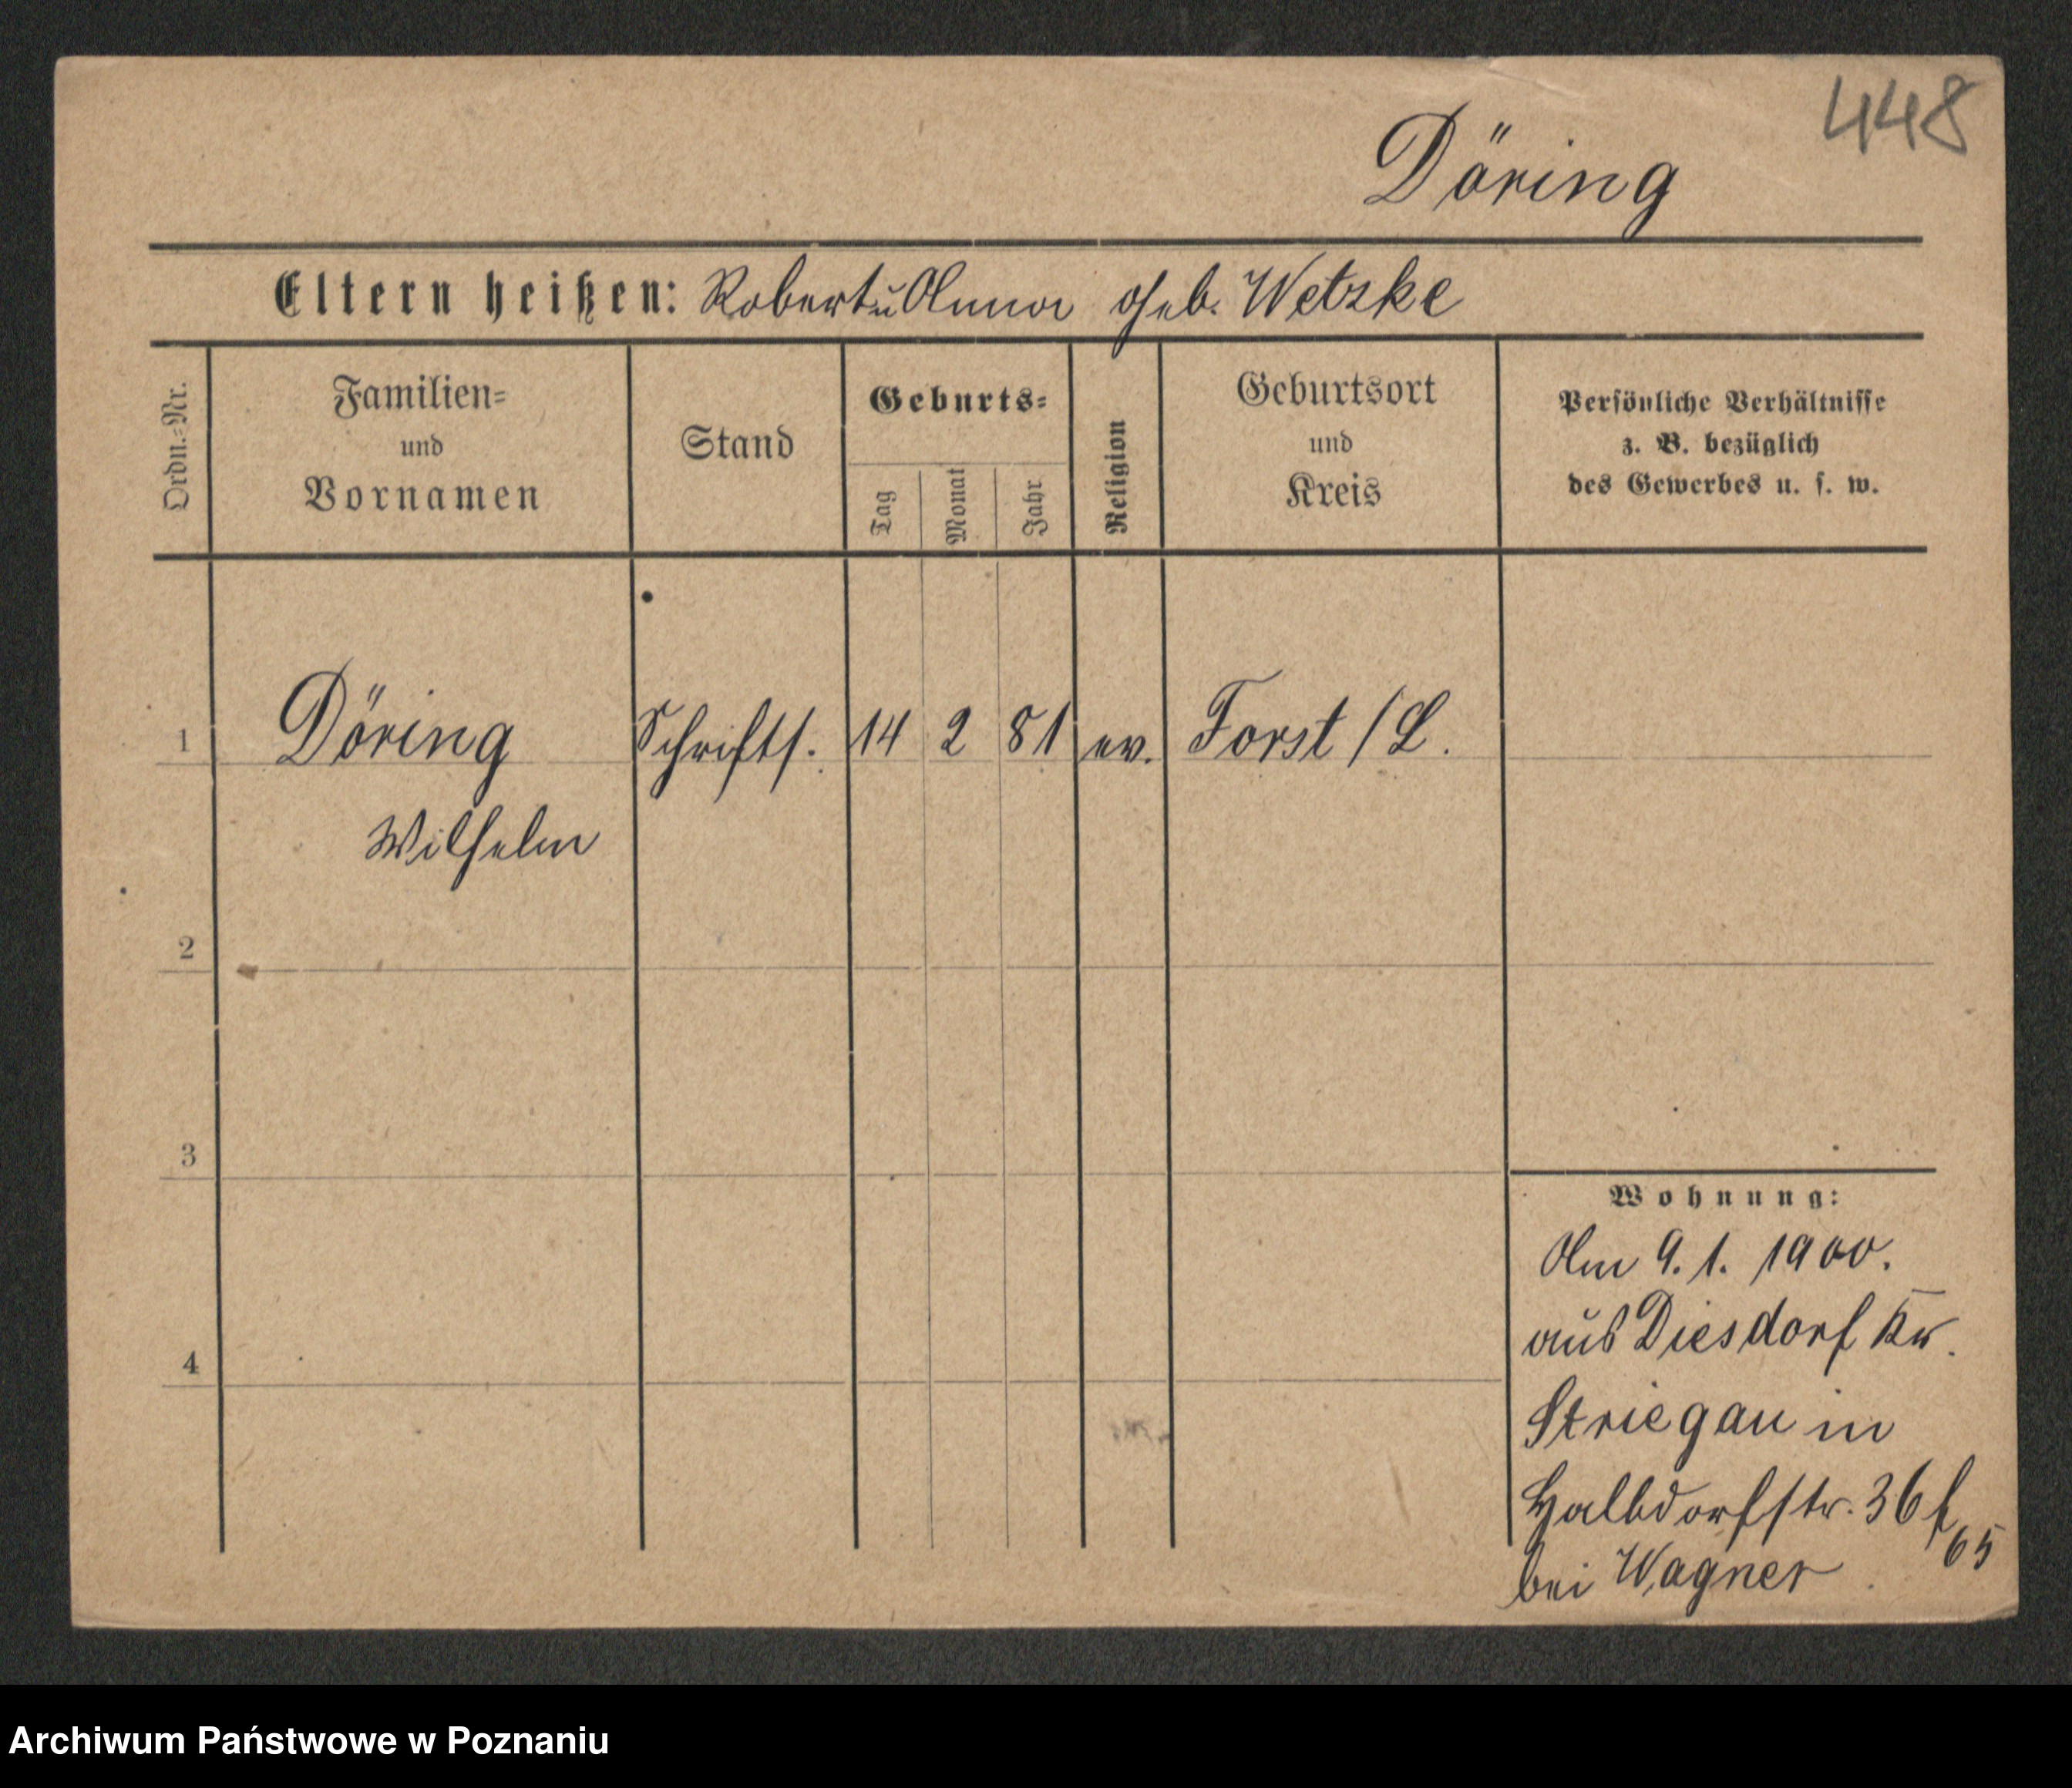 448
Döring
Eltern heißen: Robert u Anna geb. Wetzke
Ordn.=Nr.
Familien=
und
Vornamen
Stand
Geburts=
Tag
Monat
Jahr
Religion
Geburtsort
und
Kreis
Persönliche Verhältnisse
z. B. bezüglich
des Gewerbes u. s. w.
1 Döring Schrifts. 14 2 81 ev. Forst / L.
Wilhelm
2
3
4
Wohnung:
Am 9. 1. 1900.
aus Diesdorf Kr.
Striegau in
Halbdorfstr. 36
65
bei Wagner
Archiwum Państwowe w Poznaniu